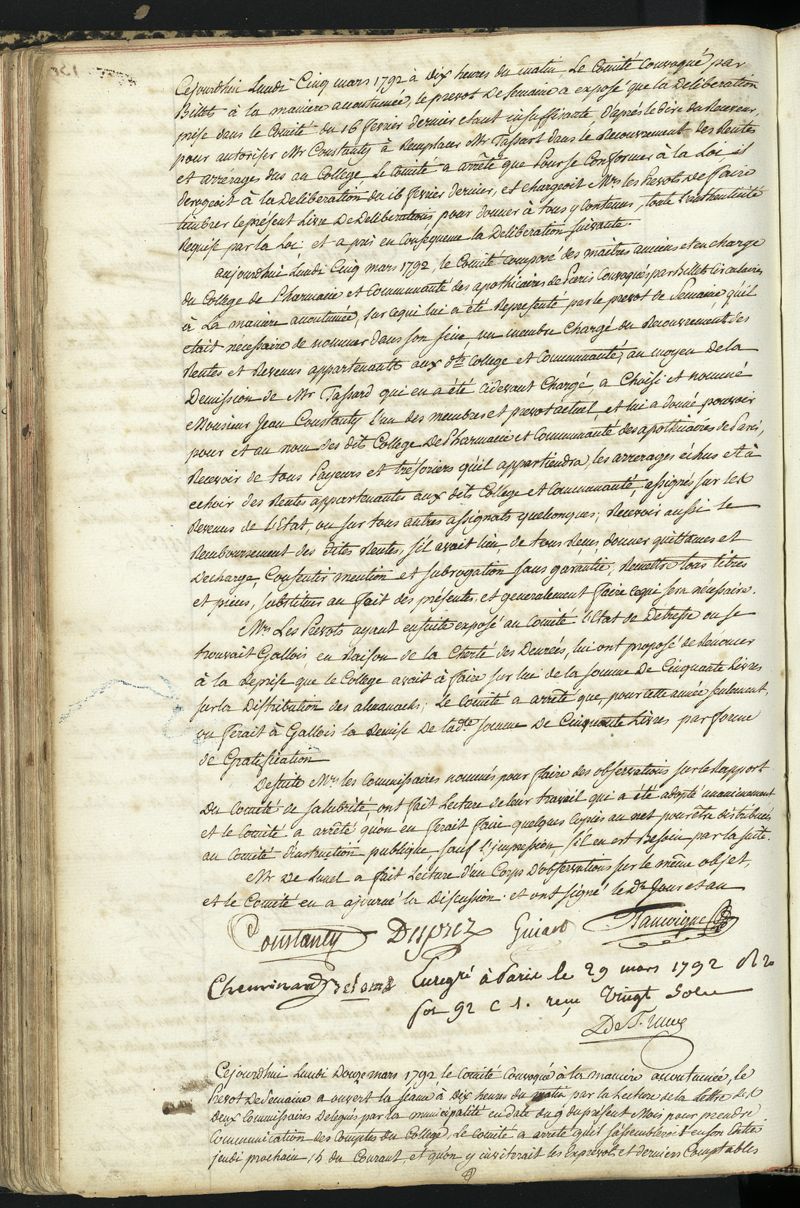 Cejourdhui Lundi Cinq mars 1792 à dix heures du matin Le Comité Convoqué par
Billet à la maniere accoutumée, le prevot De Semaine a exposé que la Deliberation
prise dans le Comité du 16 fevrier dernier étant insuffisante d'après le dire du Receveur,
pour autoriser Mr Constanty à Remplacer Mr Tassart dans le Recouvrement des Rentes
et arrérages dus au College Le Comité a arrêté que pour se Conformer à la Loi, il
derogeoit à la Deliberation du 16 fevrier dernier, et chargeoit Mrs les Prevots de faire
timbrer le présent Livre De Deliberations pour donner à tous y contenus, toute l'authenticité
Requise par la Loi et a pris en Consequence la Deliberation suivante.
aujourdhui Lundi Cinq mars 1792, le Comité Composé des maitres anciens et en charge
du College de Pharmacie et Communauté des apothicaires de Paris Convoqués par Billet Circulaire
à la maniere accoutumée, sur ce qui lui a été Representé par le prevot de Semaine qu'il
étoit necessaire de nommer dans son sein, un membre Chargé du Recouvrement des
Rentes et Revenus appartenants aux dts College et Communauté, au moyen de la
Demission de Mr Tassard qui en a été cidevant Chargé, a Choisi et nommé
Monsieur Jean Constanty l'un des membres et prevot actuel, et lui a donné pouvoir
pour et au nom des dit College De Pharmacie et Communauté des apothicaires de Paris,
Recevoir de tous Payeurs et trésoriers qu'il appartiendra, les arrerages échus et à
echoir des Rentes appartenantes aux dits College et Communauté, assignés sur les
Revenus de l'Etat, ou sur tous autres assignats quelconques; Recevoir aussi le
Remboursement des dites Rentes, s'il avait lieu, de tous Reçus, donner quittances et
Decharge, Consentir mention et subrogation sans garantie, Remettre tous titres
et pieces, substituer au fait des présentes, et generalement faire ce qui sera nécessaire.
Mrs Les Prevots ayant ensuite exposé au Comité l'Etat de Detresse ou se
trouvait Gallois en Raison de la Cherté des Denrées, lui ont proposé de Renoncer
à la Reprise que le College avait à faire sur lui de la somme De Cinquante Livres
sur la Distribution des almanachs; le Comité a arrêté que, pour cette année seulement,
on ferait à Gallois la Remise de lade somme De Cinquante Livres par forme
de Gratification
De suite Mrs les Commissaires nommés pour faire des observations sur le Rapport
Du Comité de Salubrité, ont fait Lecture de leur travail qui a été adopté unanimement
et le Comité a arrêté qu'on en ferait faire quelques copies au net pour être distribuées
au Comité d'instruction publique, sauf l'impression, s'il en est Besoin par la suite.
Mr De Lunel a fait Lecture d'un Corps D'observations sur le même objet,
et le Comité en a ajourné la Discussion. et ont signé le dt Jour et an
Constanty Desprez Guiard Nauvigne
Cheminard
Enregré à Paris le 29 mars 1792
fol 92 C 1. reçu Vingt Sols
Cejourdhui Lundi Douze mars 1792 le Comité Convoqué à la maniere accoutumée, le
Prevot De Semaine a ouvert la séance à dix heures du matin par la Lecture de la lettre des
Deux Commissaires Delegués par la municipalité en date du 9 du présent Mois pour prendre
Communication des Comptes du College, Le Comité a arrêté qu'il s'assembleroit
jeudi prochain 15 du Courant, et qu'on y inviterait les Exprevots et derniers Comptables